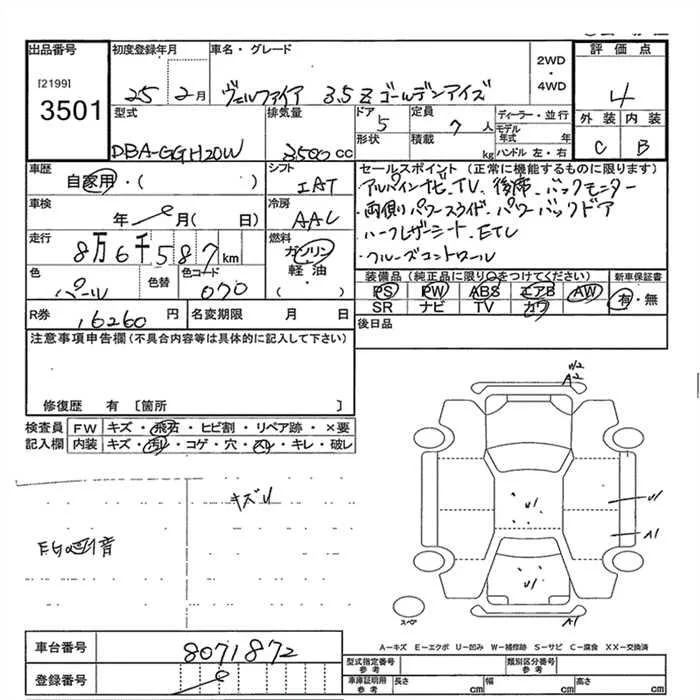 出品番号 初度登録年月 車名・グレード 2WD・4WD 評価点
[2199] 3501 25 2月 ヴェルファイア 3.5Z ゴールデンアイズ 4
型式 排気量 ドア 5 定員 7人 ディーラー・並行 外装 内装
形状 積載 kg モデル年式 年 ハンドル 左・右
DBA-GGH20W 3,500cc C B
車歴 シフト セールスポイント (正常に機能するものに限ります)
自家用・( ) IAT ・アルパインナビ、TV、後席、バックモニター
車検 冷房 ・両側パワースライド・パワーバックドア
年 月( 日) AAC ・ハーフレザーシート、ETC
走行 燃料 ・クルーズコントロール
8万6千587km ガソリン・軽油 ( )
色 色替 色コード 装備品 (純正品に限り○をつけてください) 新車保証書
パール 070 PS PW ABS エアB AW 有・無
SR ナビ TV カワ
R券 16260円 名変期限 月 日 後日品
注意事項申告欄(不具合内容等は具体的に記入して下さい)
修復歴 有 〔箇所 〕
検査員記入欄 FW キズ・飛石・ヒビ割・リペア跡・×要
内装 キズ・汚レ・コゲ・穴・スレ・キレ・破レ
A2
キズU
U1
U1
A1
U1
A1
スペア
車台番号 8071872
登録番号
A-キズ E-エクボ U-凹み W-補修跡 S-サビ C-腐食 XX-交換済
型式指定番号 参考 類別区分番号 参考
車庫証明用 参考 長さ cm 幅 cm 高さ cm